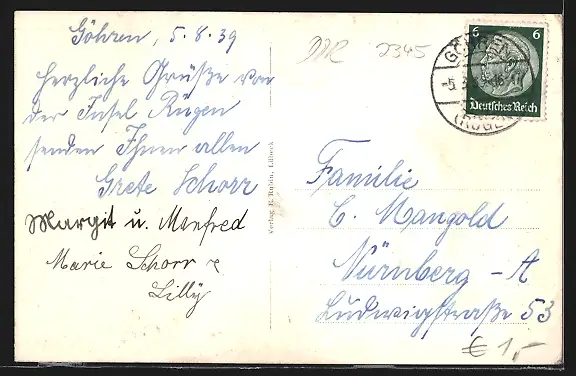 Göhren, 5.8.39
Herzliche Grüße von
der Insel Rügen
senden Ihnen allen
Grete Schorr
Margit u. Manfred
Marie Schorr
Lilly
Verlag E. Rubin, Lübeck
DDR 2345
6 6
GÖHREN
-5.
(RÜGEN)
Deutsches Reich
Familie
C. Mangold
Nürnberg-A
Ludwigstraße 53
€ 1,-